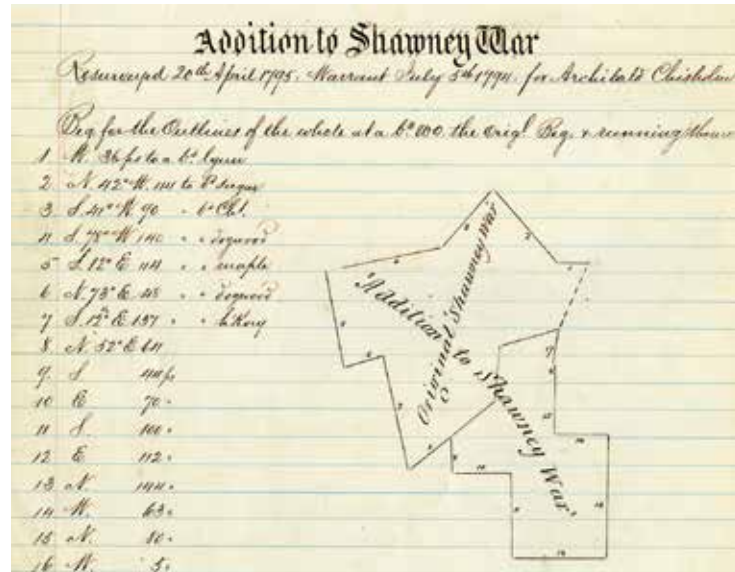 Addition to Shawney War
Resurveyed 20th April 1795. Warrant July 5th 1794. for Archibald Chisholm
Beg for the Outlines of the whole at a bd. the Origl Beg. & running thence
1 W. 36 ps to a bd. lynn
2 N. 42° W. to bd Sugar
3 S. 41° W 90 " bd
4 S. 78° W 140 " " dogwood
5 S. 12° E 114 " " maple
6 N. 78° E 48 " " dogwood
7 S. 12° E 137 " " hikory
8 N. 52° E 64
9 S 44 ps
10 E 70 "
11 S. 100 "
12 E 112 "
13 N. 144 "
14 W. 63 "
15 N. 80 "
16 W. 5 "
Original Shawney War
"Addition to Shawney War"